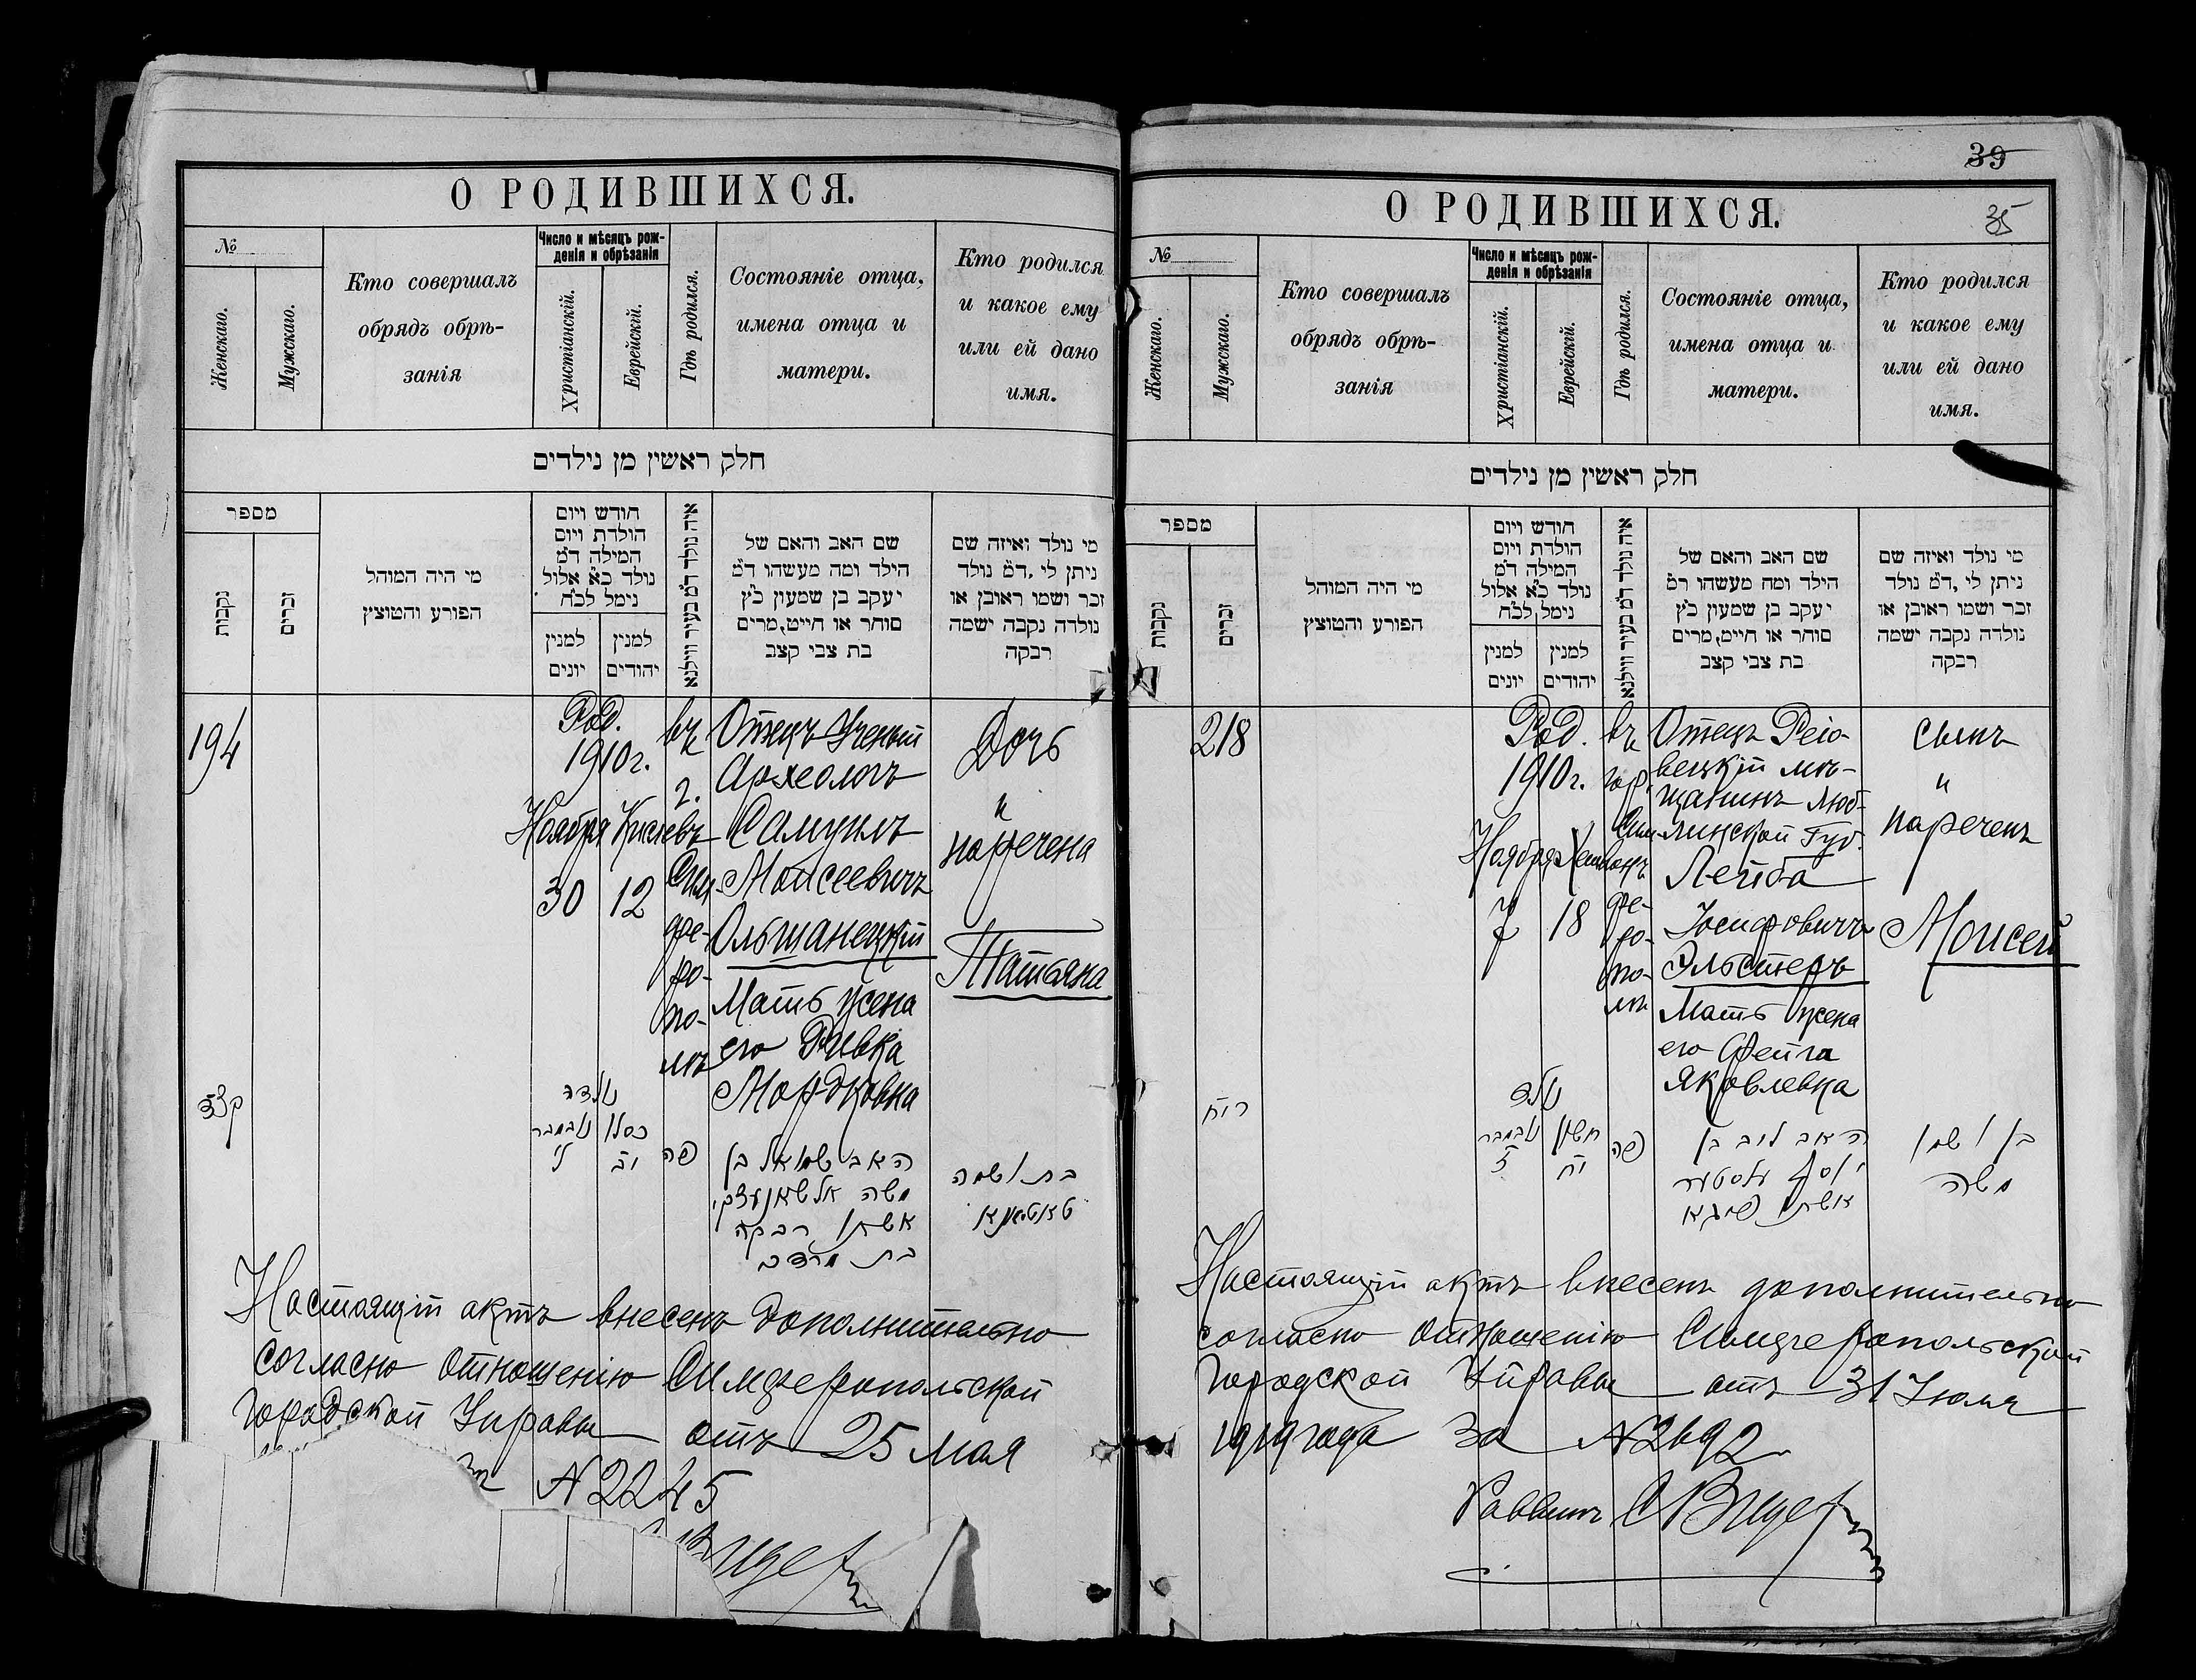 О РОДИВШИХСЯ.
№
Женскаго.
Мужскаго.
Кто совершалъ
обрядъ обрѣ-
занія
Число и мѣсяцъ рож-
денія и обрѣзанія
Христіанскій.
Еврейскій.
Гдѣ родился.
Состояніе отца,
имена отца и
матери.
Кто родился
и какое ему
или ей дано
имя.
חלק ראשין מן נילדים
מספר
נקבות
זכרים
מי היה המוהל
הפורע והטוצץ
חודש ויום
הולדת ויום
המילה ד"מ
נולד כ"א אלול
נימל לכ"ח
למנין
יונים
למנין
יהודים
איה נולד ד"מ בעיר ווילנא
שם האב והאם של
הילד ומה מעשהו ד"מ
יעקב בן שמעון כ"ץ
סוחר או חייט, מרים
בת צבי קצב
מי נולד ואיזה שם
ניתן לי, ד"מ נולד
זכר ושמו ראובן או
נולדה נקבה ישמה
רבקה
194
Род.
1910г.
Ноября Кислевъ
30 12
въ
г.
Сим
фе-
ро-
по-
лѣ
Отецъ Ученый
Археологъ
Самуилъ
Моисеевичъ
Ольшанецкій
Мать жена
его Ривка
Мордковна
Дочь
и
наречена
Татьяна
קצד
נולדה
כסלו נובמבר
יב ל
פה
האב שמואל בן
משה אלשאנעצקי
אשתו רבקה
בת מרדכי
בת ושמה
טאטיאנא
Настоящій актъ внесенъ дополнительно
согласно отношенію Симферопольской
Городской Управы отъ 25 мая
№ 2245
О РОДИВШИХСЯ.
39
35
№
Женскаго.
Мужскаго.
Кто совершалъ
обрядъ обрѣ-
занія
Число и мѣсяцъ рож-
денія и обрѣзанія
Христіанскій.
Еврейскій.
Гдѣ родился.
Состояніе отца,
имена отца и
матери.
Кто родился
и какое ему
или ей дано
имя.
חלק ראשין מן נילדים
מספר
נקבות
זכרים
מי היה המוהל
הפורע והטוצץ
חודש ויום
הולדת ויום
המילה ד"מ
נולד כ"א אלול
נימל לכ"ח
למנין
יונים
למנין
יהודים
איה נולד ד"מ בעיר ווילנא
שם האב והאם של
הילד ומה מעשהו ד"מ
יעקב בן שמעון כ"ץ
סוחר או חייט, מרים
בת צבי קצב
מי נולד ואיזה שם
ניתן לי, ד"מ נולד
זכר ושמו ראובן או
נולדה נקבה ישמה
רבקה
218
Род.
1910г.
Ноября Хешванъ
7 18
въ
гор.
Сим
фе-
ро-
по-
лѣ
Отецъ Рего-
вецкій мѣ-
щанинъ Люб-
линской Губ.
Лейба
Іосифовичъ
Эльстеръ
Мать жена
его Фейга
Яковлевна
сынъ
и
нареченъ
Моисей
ריח
נולד
חשון נובמבר
יח ז
פה
האב ליב בן
יוסף עלסטער
אשתו פייגא
בן ושמו
משה
Настоящій актъ внесенъ дополнительно
согласно отношенію Симферопольской
Городской Управы отъ 31 Іюля
1919 года за № 2692
Раввинъ